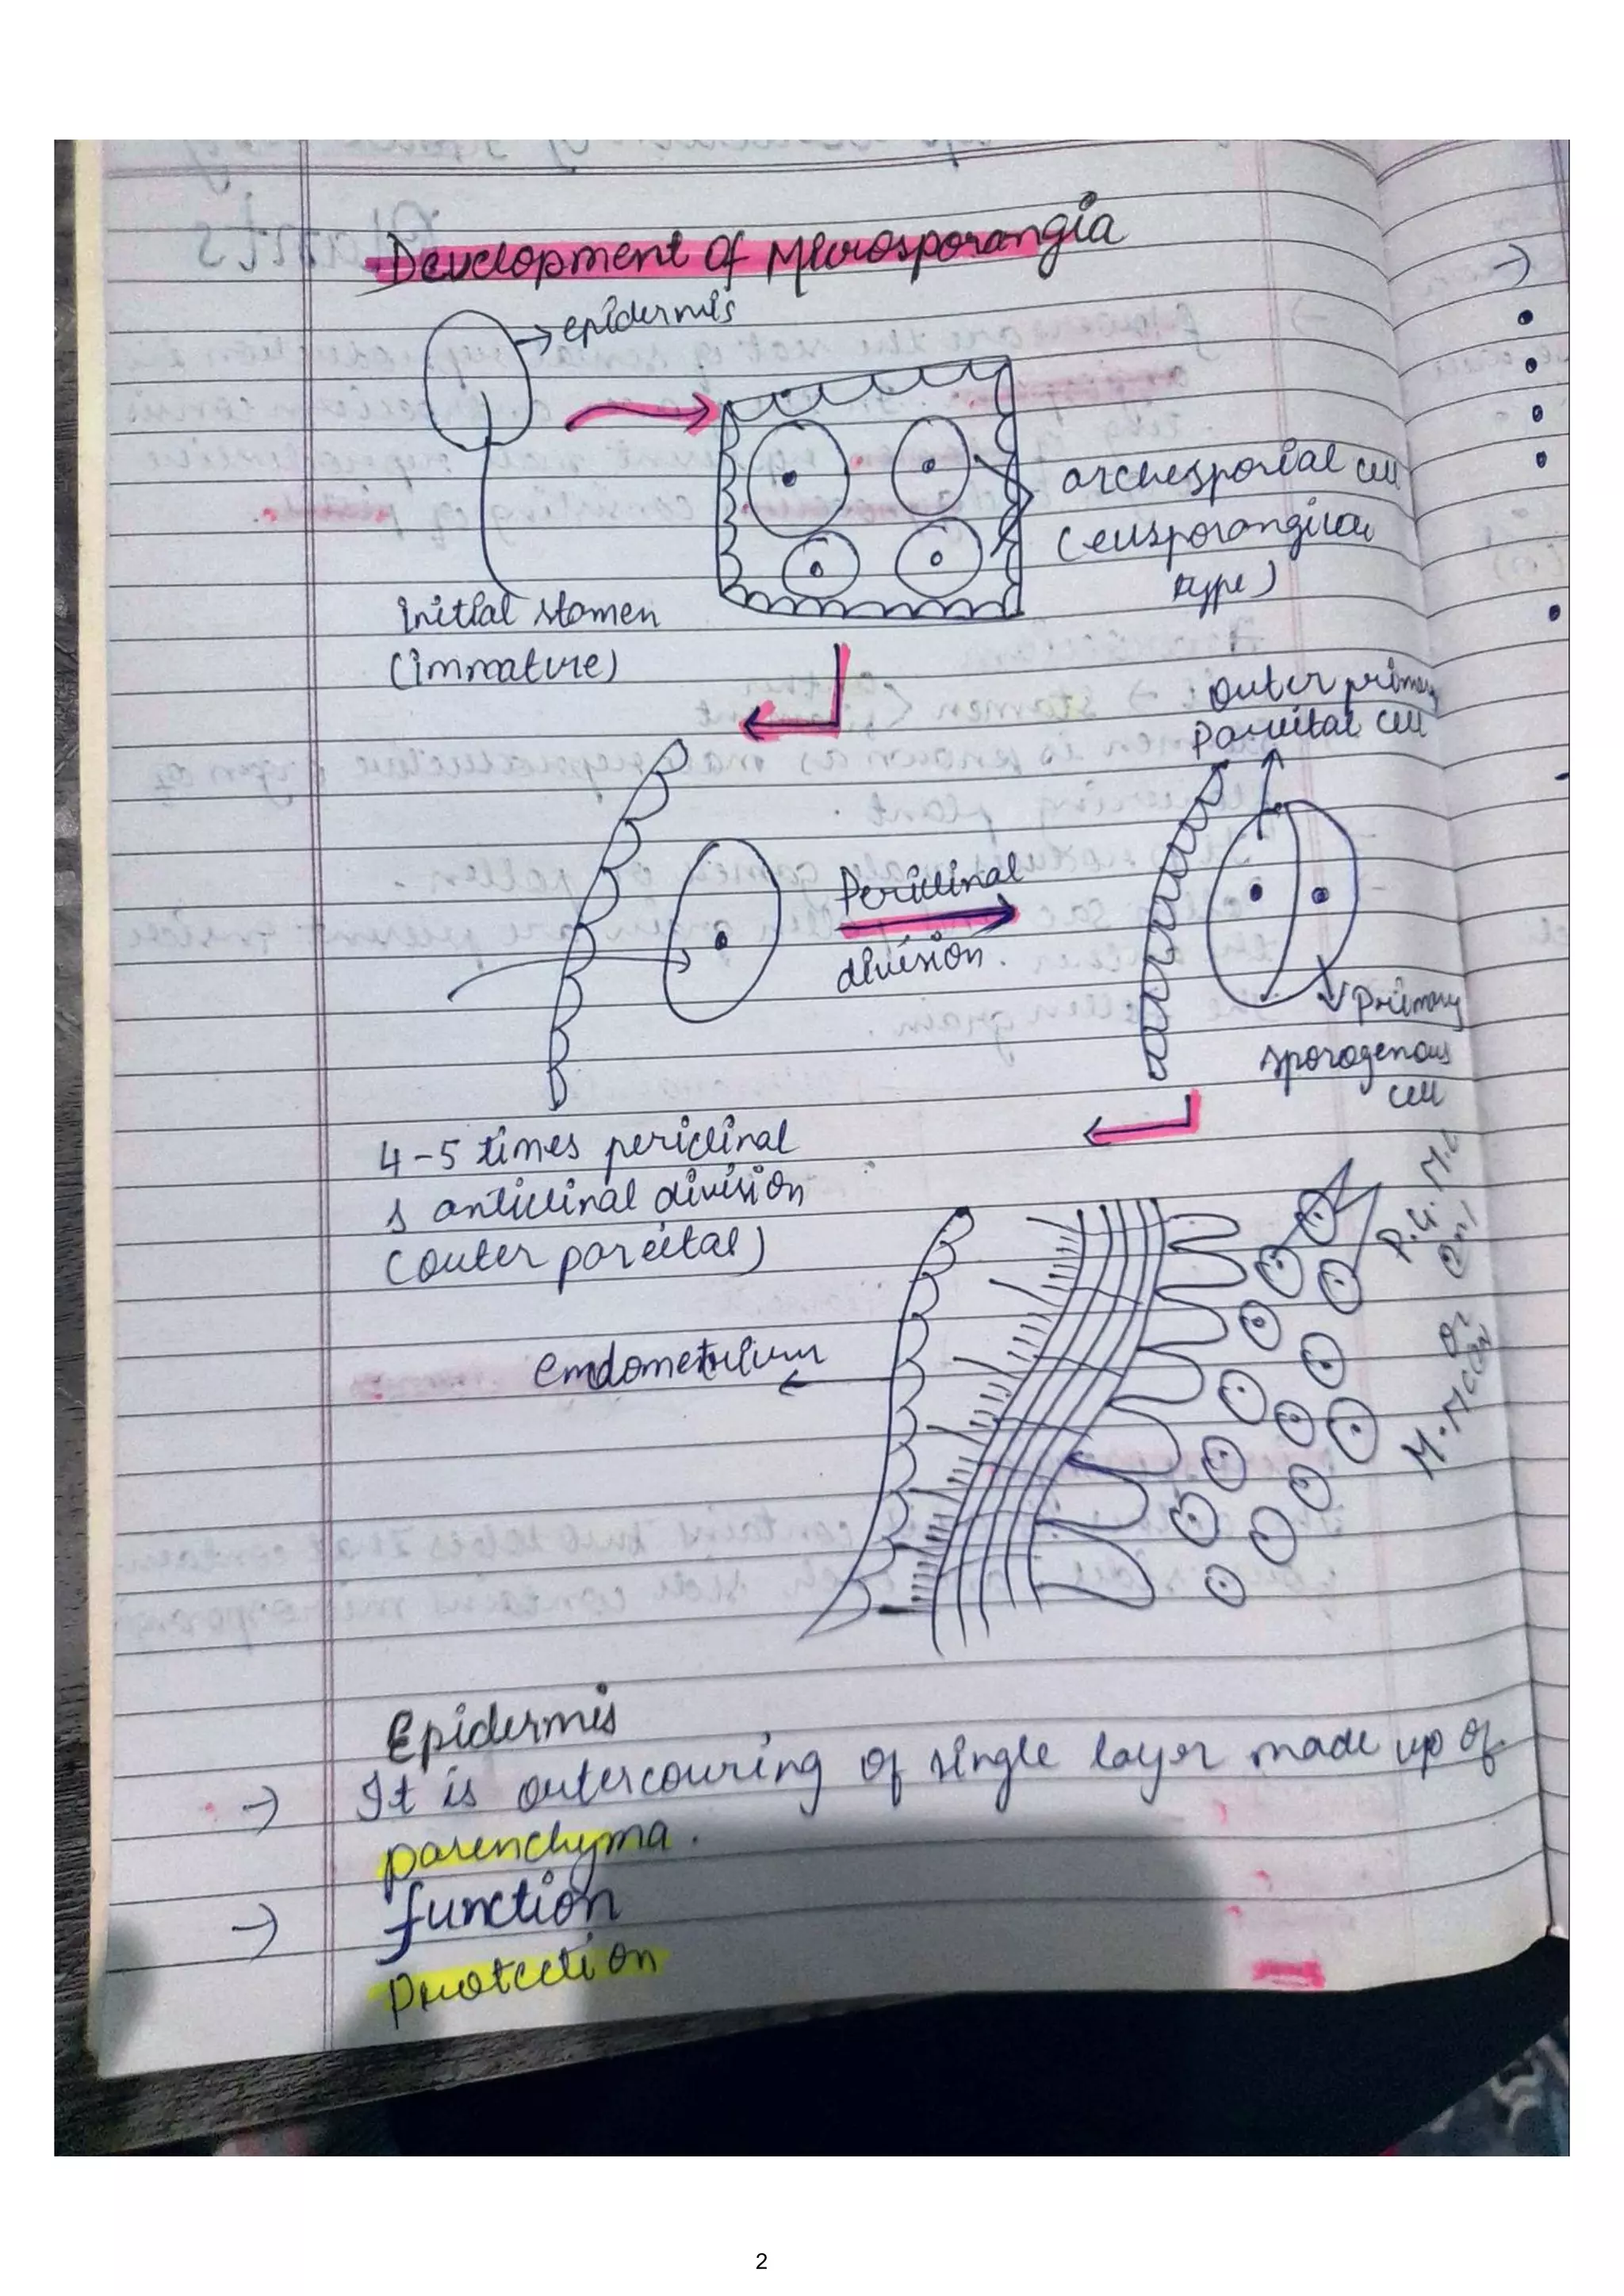 Development of Microsporangia
epidermis
archesporial cell
(eusporangiate
type)
initial stamen
(immature)
outer primary
parietal cell
Periclinal
division.
Primary
sporogenous
cell
4-5 times periclinal
& anticlinal division
(outer parietal)
P.M.C
(2n)
or
M.M.C
endometrium
Epidermis
→ It is outercovering of single layer made up of
parenchyma.
→ function
Protection
2